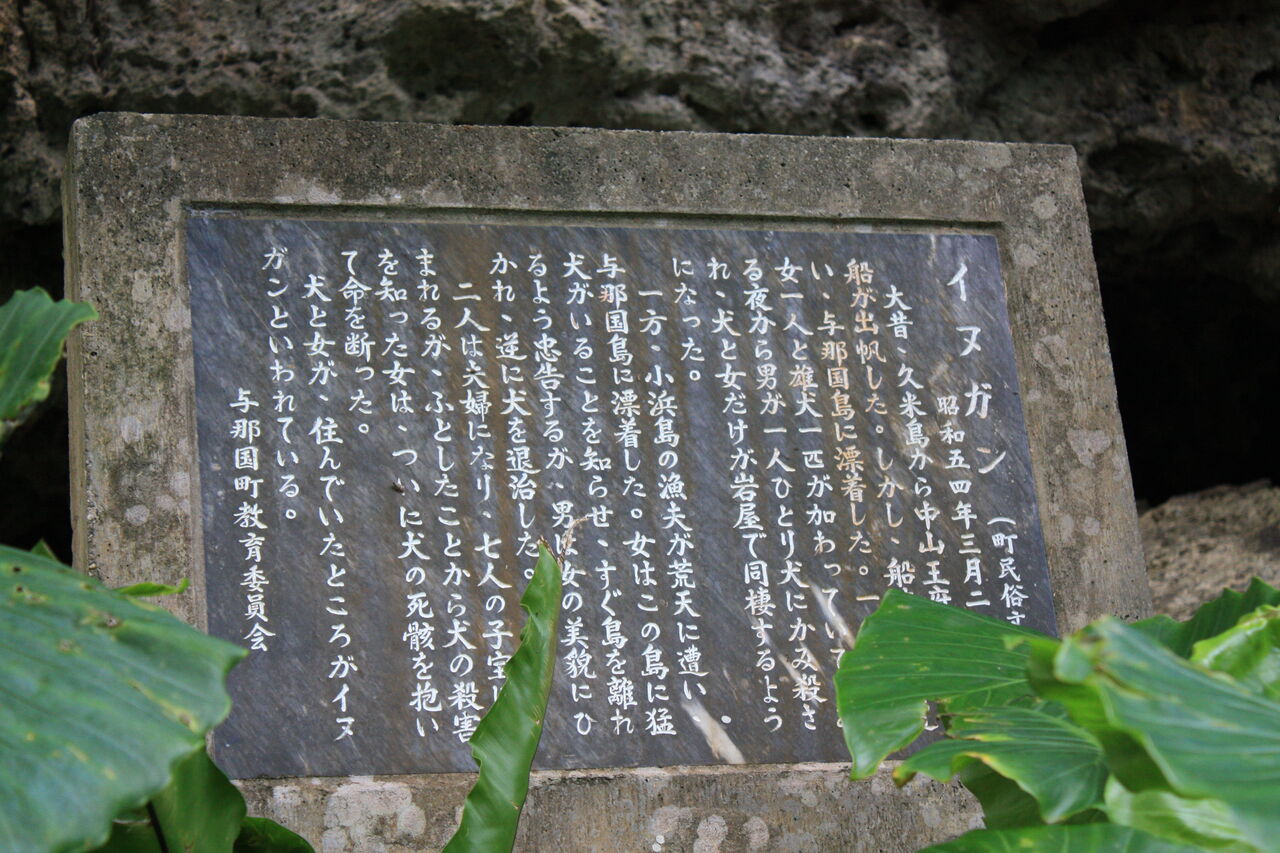 イヌガン（町民俗
昭和五四年三月二
大昔、久米島から中山王府
船が出帆した。しかし、船
い、与那国島に漂着した。一
女一人と雄犬一匹が加わってい
る夜から男が一人ひとり犬にかみ殺さ
れ、犬と女だけが岩屋で同棲するよう
になった。
一方、小浜島の漁夫が荒天に遭い、
与那国島に漂着した。女はこの島に猛
犬がいることを知らせ、すぐ島を離れ
るよう忠告するが、男は女の美貌にひ
かれ、逆に犬を退治した。
二人は夫婦になり、七人の子宝
まれるが、ふとしたことから犬の殺害
を知った女は、ついに犬の死骸を抱い
て命を断った。
犬と女が、住んでいたところがイヌ
ガンといわれている。
与那国町教育委員会